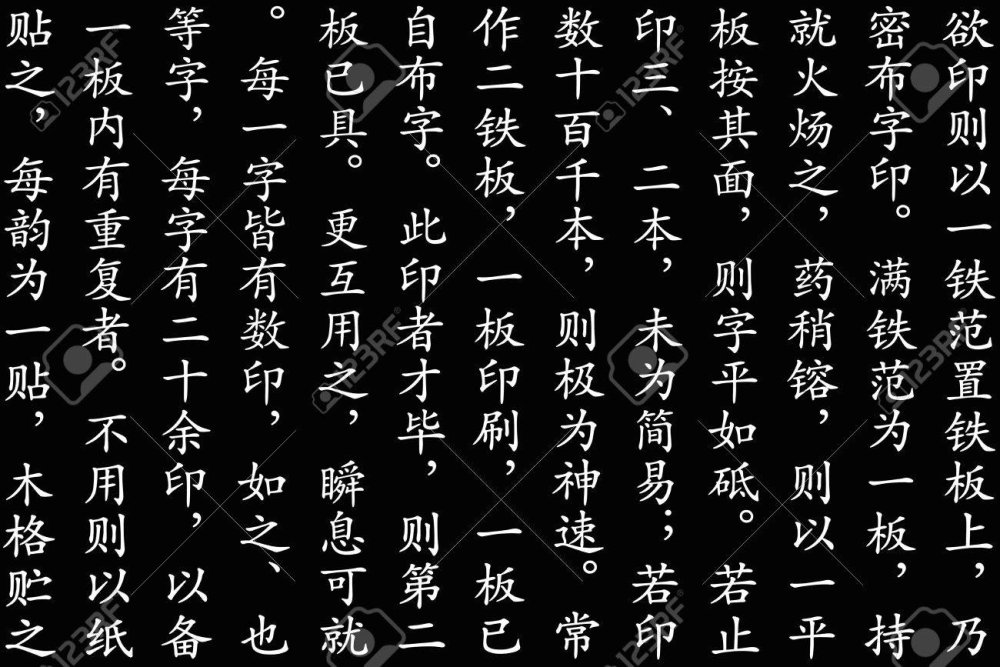 欲印则以一铁范置铁板上，乃
密布字印。满铁范为一板，持
就火炀之，药稍镕，则以一平
板按其面，则字平如砥。若止
印三、二本，未为简易；若印
数十百千本，则极为神速。常
作二铁板，一板印刷，一板已
自布字。此印者才毕，则第二
板已具。更互用之，瞬息可就
。每一字皆有数印，如之、也
等字，每字有二十余印，以备
一板内有重复者。不用则以纸
贴之，每韵为一贴，木格贮之
123RF